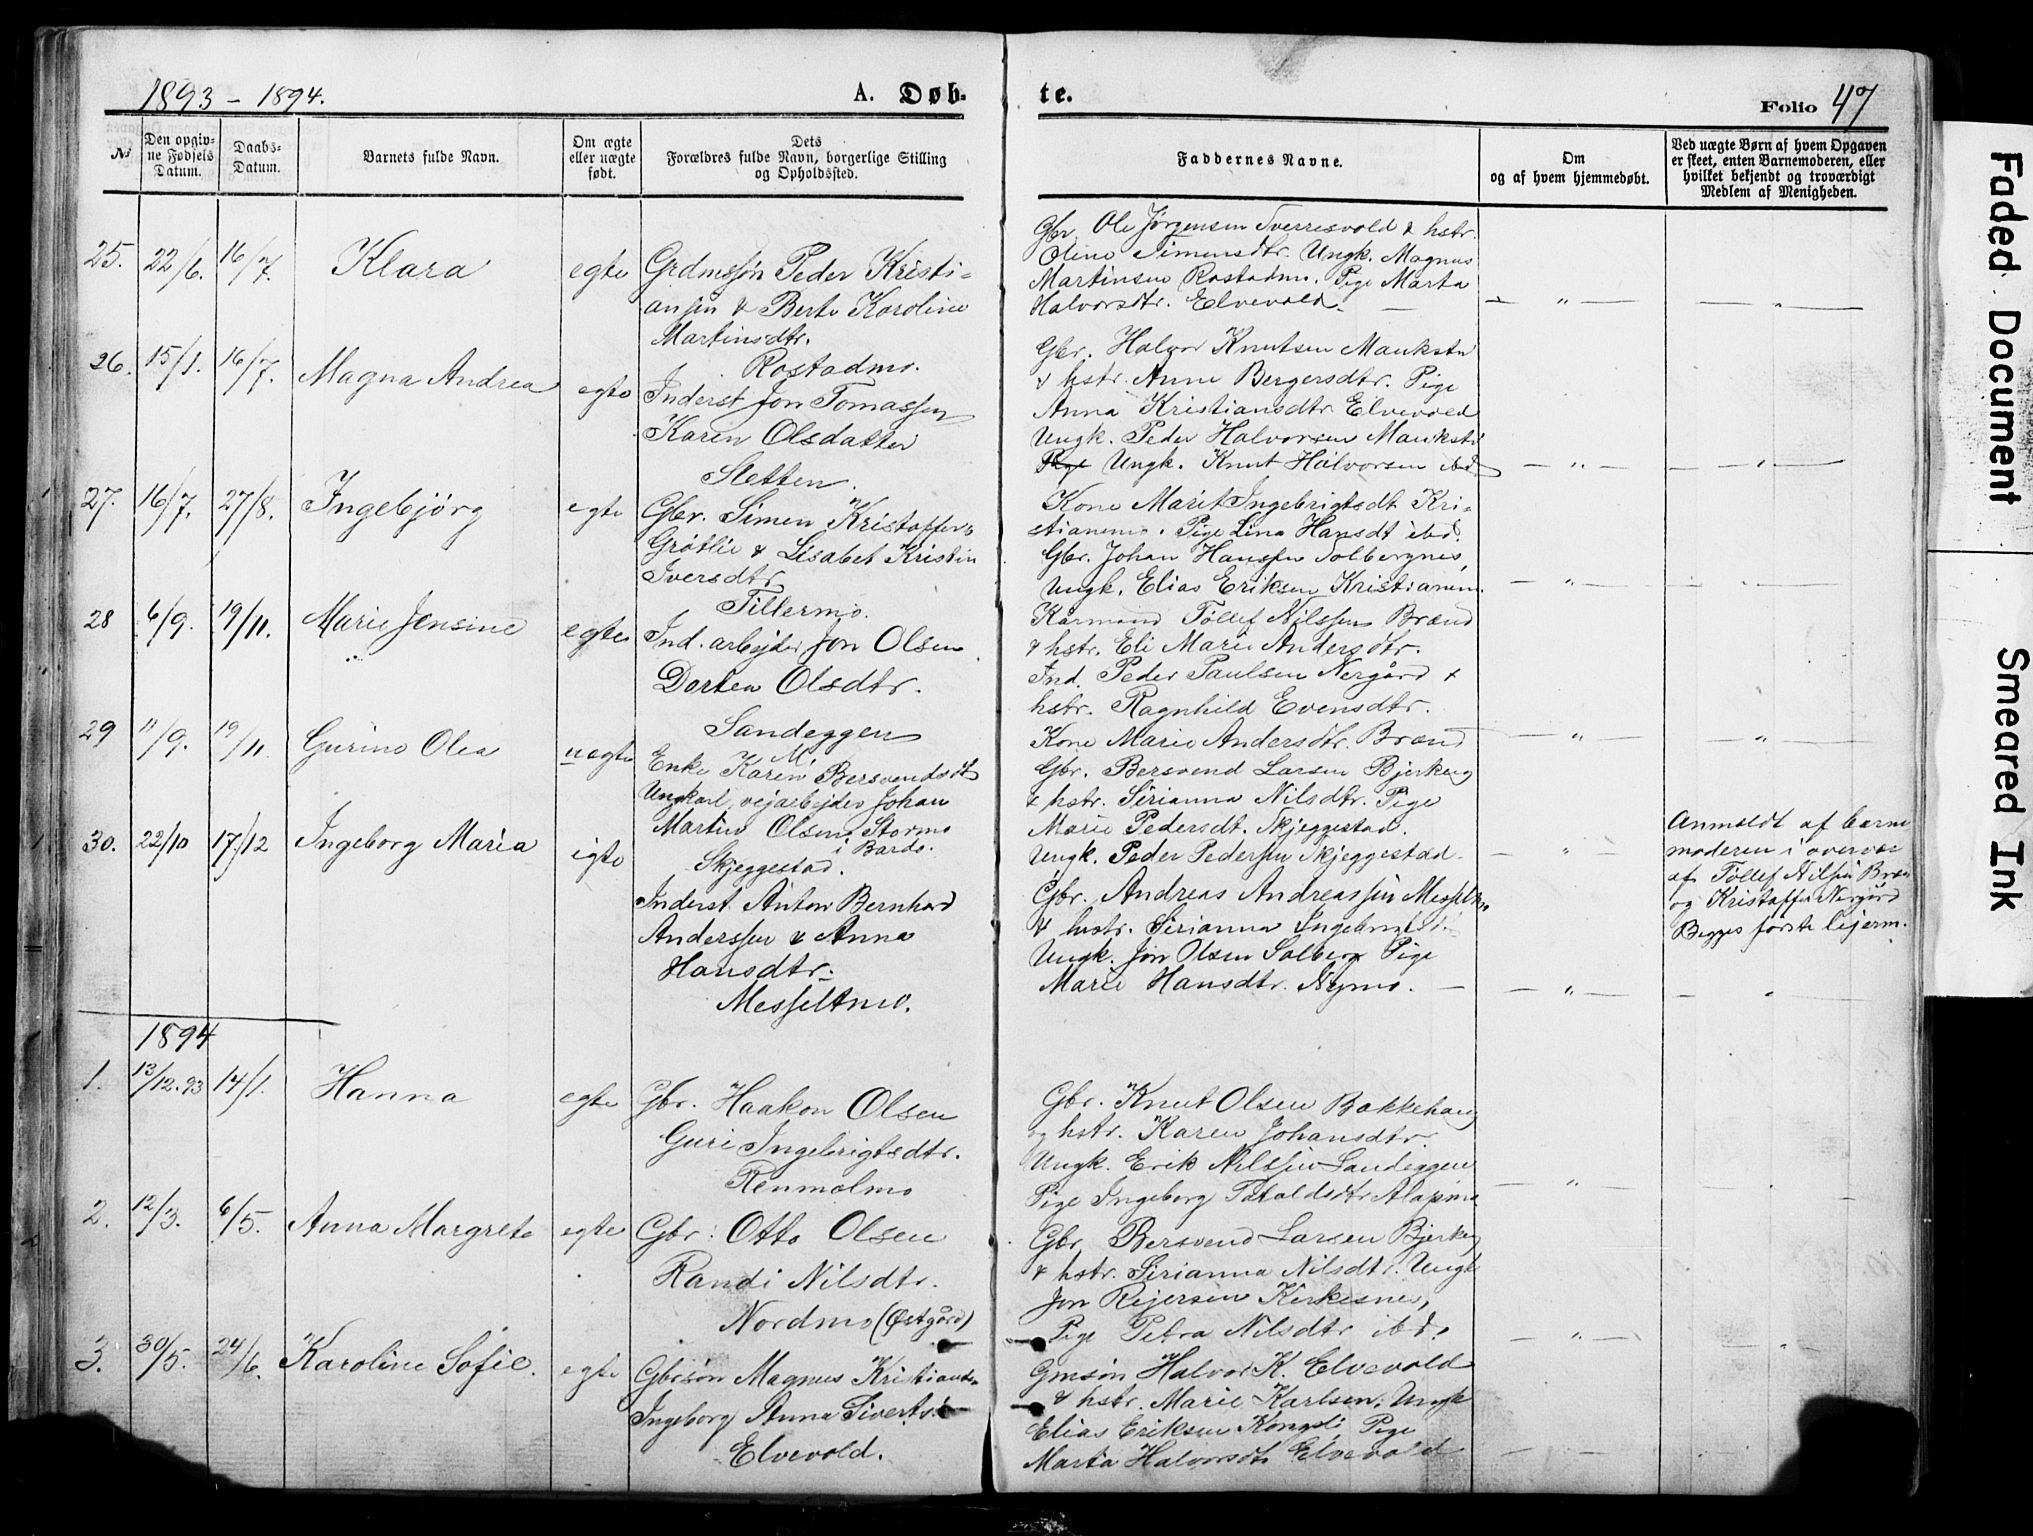 1893 - 1894.
A. Døb-
te.
Folio 47
№
Den opgiv-
ne Fødsels
Datum.
Daabs-
Datum.
Barnets fulde Navn.
Om ægte
eller uægte
født.
Dets
Forældres fulde Navn, borgerlige Stilling
og Opholdssted.
Faddernes Navne.
Om
og af hvem hjemmedøbt.
Ved uægte Børn af hvem Opgaven
er skeet, enten Barnemoderen, eller
hvilket bekjendt og troværdigt
Medlem af Menigheden.
25. 22/6. 16/7. Klara egte
Grdmssøn Peder Kristi-
ansen & Berte Karoline
Martinsdtr.
Rostadmo.
Gbr. Ole Jørgensen Sverresvold & hstr.
Oline Simensdtr. Ungk. Magnus
Martinsen Rostadmo. Pige Marta
Halvorsdtr. Elvevold. — — " — — " —
26. 15/1. 16/7. Magna Andrea egte
Inderst Jon Tomassen
Karen Olsdatter
Sletten.
Gbr. Halvor Knutsen
& hstr. Anne Bergersdtr. Pige
Anna Kristiansdtr Elvevold
Ungk. Peder Halvorsen
Pige Ungk. Knut Halvorsen ibd — " — — " —
27. 16/7. 27/8. Ingebjörg egte
Gbr. Simen Kristoffers.
Grötlie & Lisabet Kristin
Iversdtr
Tillermo.
Kone Marit Ingebrigtsdt Kri-
stianemo. Pige Lina Hansdt ibd.
Gbr. Johan Hanssen Solbergnes,
Ungk. Elias Eriksen Kristianem. — " — — " —
28 6/9. 19/11. Marie Jensine egte
Ind. arbejder Jon Olsen
Dorten Olsdtr.
Sandeggen
Kårmand Töllef Nilssen Brænd
& hstr. Eli Marie Andersdtr.
Ind. Peder Paulsen Nergård &
hstr. Ragnhild Evensdtr.
Kone Marie Andersdtr. Brænd — " — — " —
29 11/9. 19/11. Gurine Olea uegte
Enke Karen M. Bersvendsdt
Ungkarl, vejarbejder Johan
Martin Olsen, Stormo
i Bardo.
Skjeggestad.
Gbr. Bersvend Larsen Bjerkeng
& hstr. Sirianna Nilsdtr. Pige
Marie Pedersdt. Skjeggestad.
Ungk. Peder Pedersen Skjeggestad. — " —
Anmeldt af barne
moderen i overvær
af Töllef Nilsen Bræn
og Kristoffer Nergård
Begges første lejerm.
30. 22/10 17/12 Ingeborg Maria egte
Inderst Anton Bernhard
Anderssen & Anna
Hansdtr.
Messeltmo.
Gbr. Andreas Andreassen Messeltm.
& hustr. Sirianna
Ungk. Jon Olsen Solberg Pige
Marie Hansdtr. Nymo. — — " — — " —
1894
1. 13/12.93 14/1. Hanna egte
Gbr. Haakon Olsen
Guri Ingebrigtsdtr.
Renmolmo
Gbr. Knut Olsen Bakkehaug
og hstr. Karen Johansdtr.
Ungk. Erik Nilssen Sandeggen
Pige Ingeborg — " —
2. 12/3. 6/5. Anna Margrete egte
Gbr: Otto Olsen
Randi Nilsdtr.
Nordmo (Østgård)
Gbr. Bersvend Larsen Bjerkeng
& hstr. Sirianna Nilsdtr. Ungk
Jon Rejersen Kirkesnes,
Pige Petra Nilsdtr ibd. — " —
3. 30/5. 24/6. Karoline Sofie. egte
Gbrsøn Magnus Kristiansen
Ingeborg Anna Sivertsd
Elvevold.
Gmsøn Halvor K. Elvevold
& hstr. Marie Karlsen. Ungk
Elias Eriksen Kongsli Pige
Marta Halvorsdtr Elvevold
Faded Document
Smeared Ink